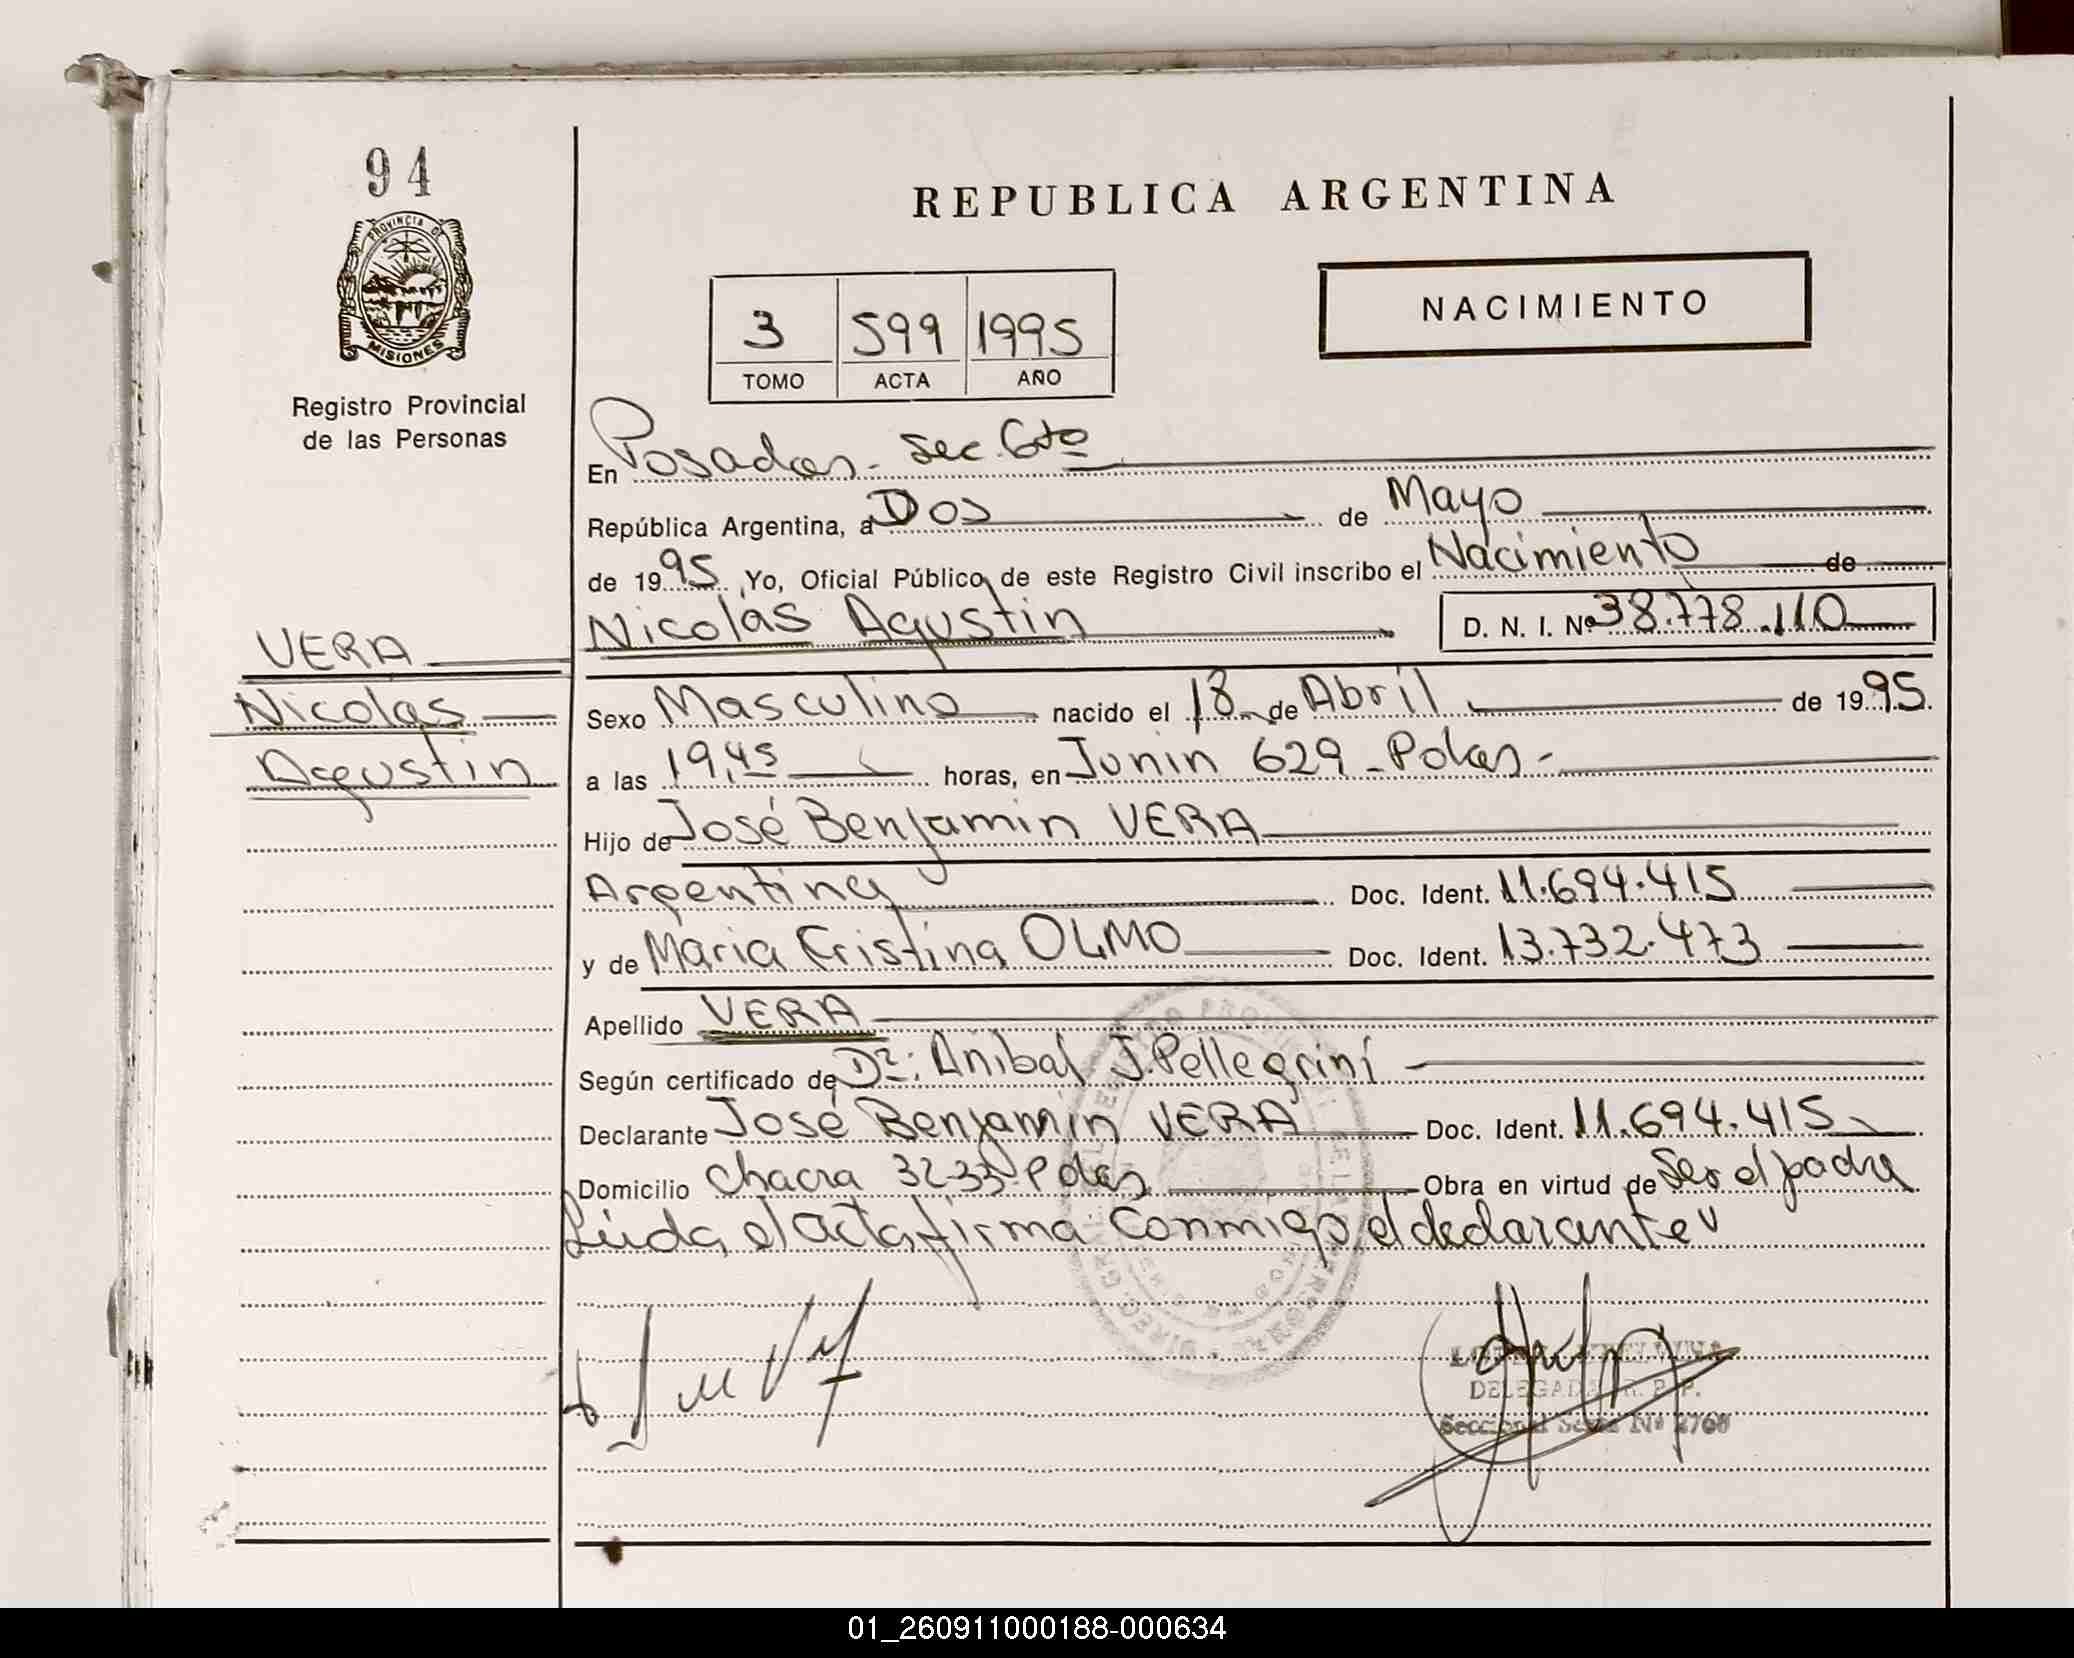 94
PROVINCIA DE
MISIONES
Registro Provincial
de las Personas
REPUBLICA ARGENTINA
NACIMIENTO
3 599 1995
TOMO ACTA AÑO
En Posadas - Sec. 6to
República Argentina, a Dos de Mayo
de 1995 Yo, Oficial Público de este Registro Civil inscribo el Nacimiento de
Nicolás Agustin D. N. I. Nº 38.778.110
VERA
Nicolas
Agustin
Sexo Masculino nacido el 18 de Abril de 1995
a las 19,45 horas, en Junin 629 - Pdas -
Hijo de José Benjamin VERA
Argentina Doc. Ident. 11.694.415
y de Maria Cristina OLMO Doc. Ident. 13.732.473
Apellido VERA
Según certificado de Dr: Anibal J. Pellegrini
Declarante José Benjamin VERA Doc. Ident. 11.694.415
Domicilio Chacra 32-33 - Pdas Obra en virtud de Ser el padre
Leida el acta firma conmigo el declarante
DELEGADA R. P. P.
Seccional Sexta Nº 2760
01_260911000188-000634